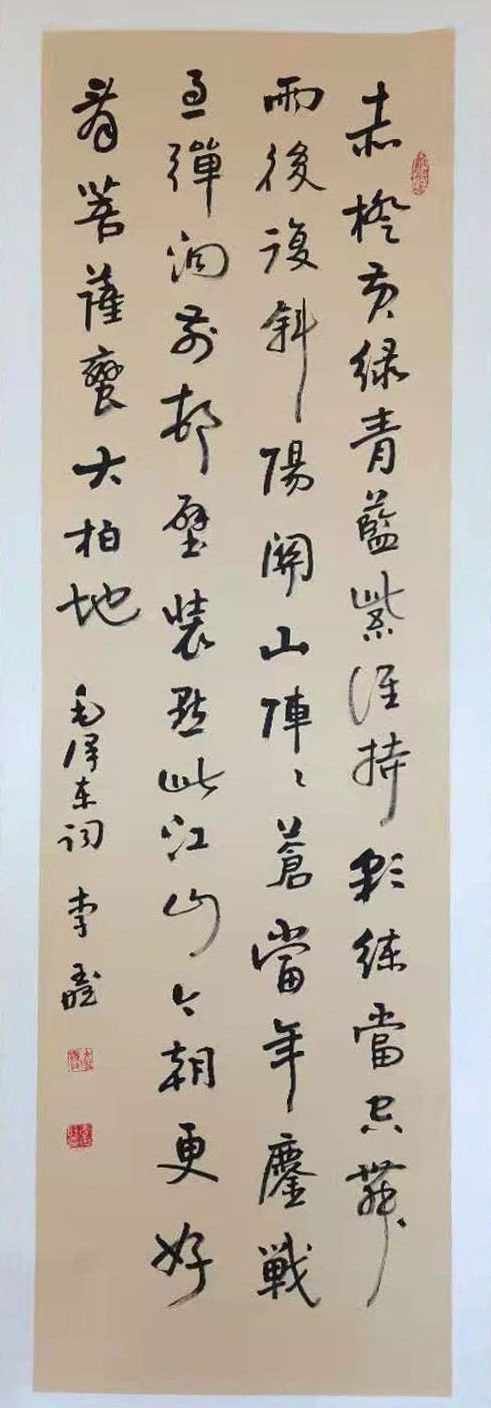 赤橙黄绿青藍紫谁持彩练當空舞
雨後復斜陽關山陣々蒼當年鏖戦
急彈洞前邨壁装點此江山今朝更好
看菩薩蠻大柏地 毛泽东词 李